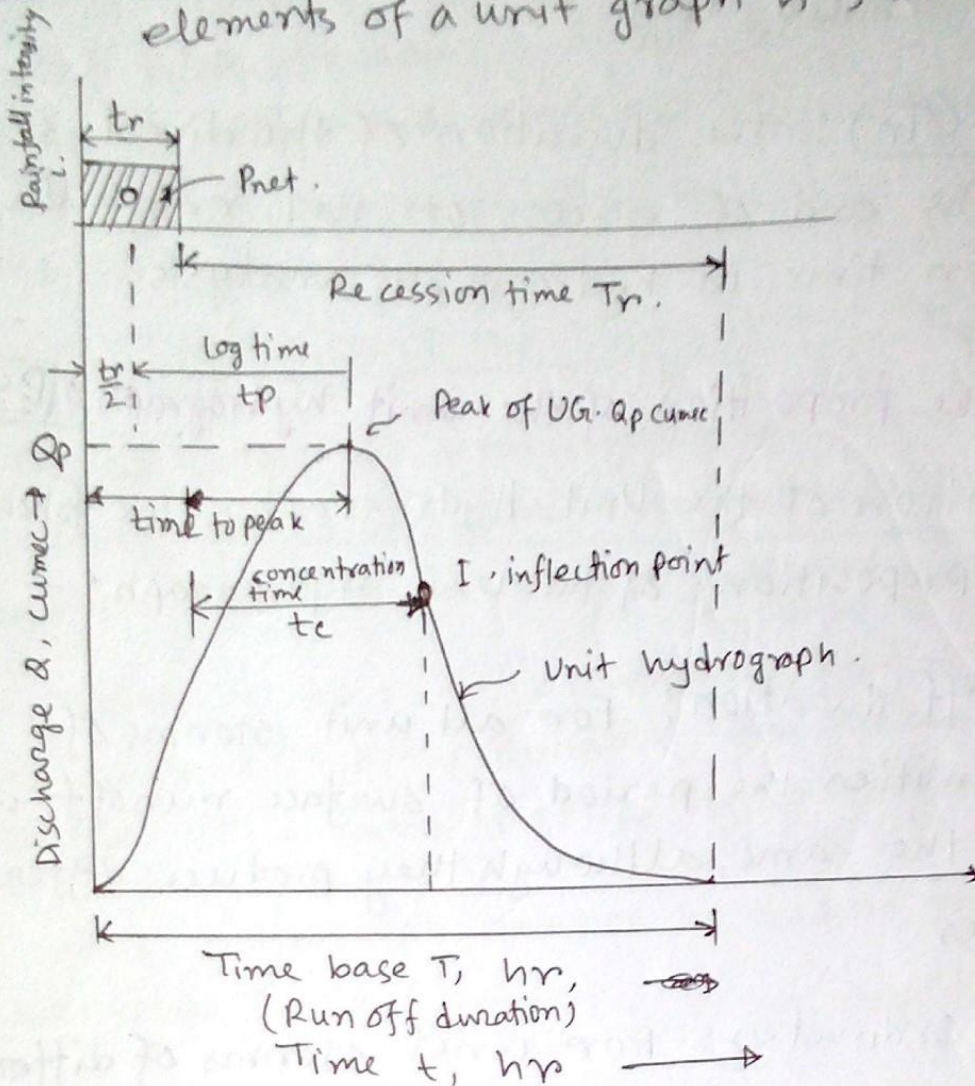 elements of a unit graph
Rainfall intensity
i.
tr
Pnet.
Recession time Tr.
tr
2
log time
tp
Peak of UG. Qp cumec
Qp
time to peak
concentration
time
tc
I. inflection point
Unit hydrograph.
Discharge Q, cumec →
Time base T, hr,
(Run off duration)
Time t, hr